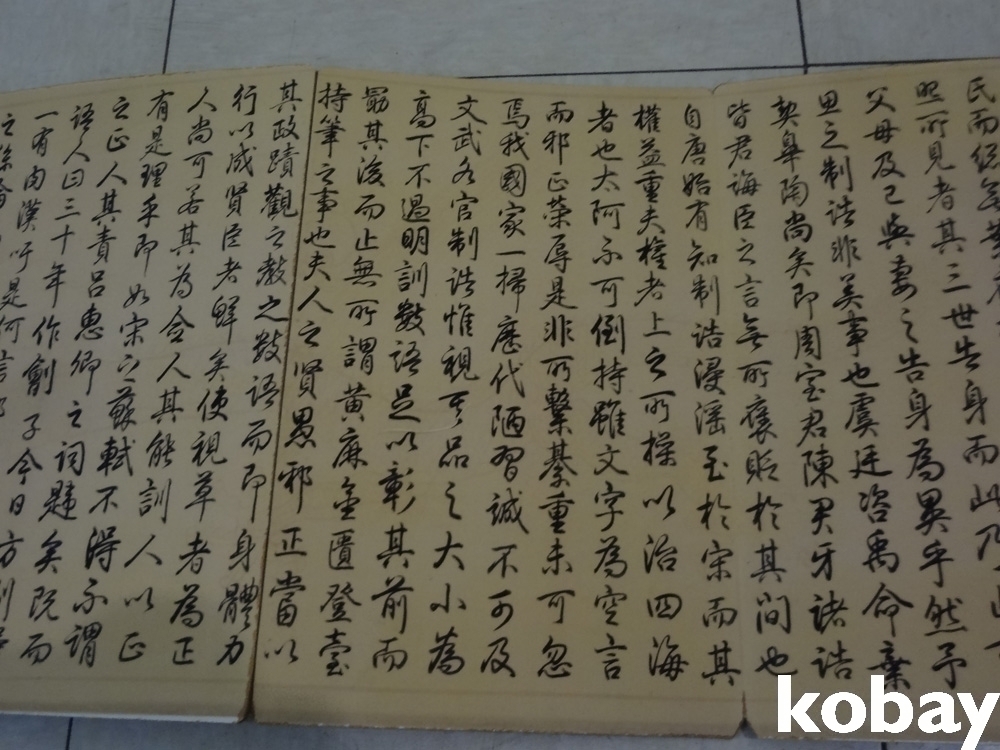 民而
照所見者其三世告身而此乃
父母及己與妻之告身為異乎然予
思之制誥非美事也虞廷咨禹命棄
契皋陶尚矣即周室君陳君牙諸誥
皆君誨臣之言無所褒貶於其間也
自唐始有知制誥浸淫至於宋而其
權益重夫權者上之所操以治四海
者也太阿不可倒持雖文字為空言
而邪正榮辱是非所繫綦重未可忽
焉我國家一掃歷代陋習誠不可及
文武各官制誥惟視其品之大小為
高下不過明訓數語足以彰其前而
勗其後而止無所謂黃麻金匱登臺
持筆之事也夫人之賢愚邪正當以
其政蹟觀之教之數語而即身體力
行以成賢臣者鮮矣使視草者為正
人尚可若其為僉人其能訓人以正
有是理乎即如宋之蘇軾不得不謂
之正人其責呂惠卿之詞韙矣既而
語人曰三十年作劊子今日方剮得
一有肉漢吁是何言
之絲綸
kobay